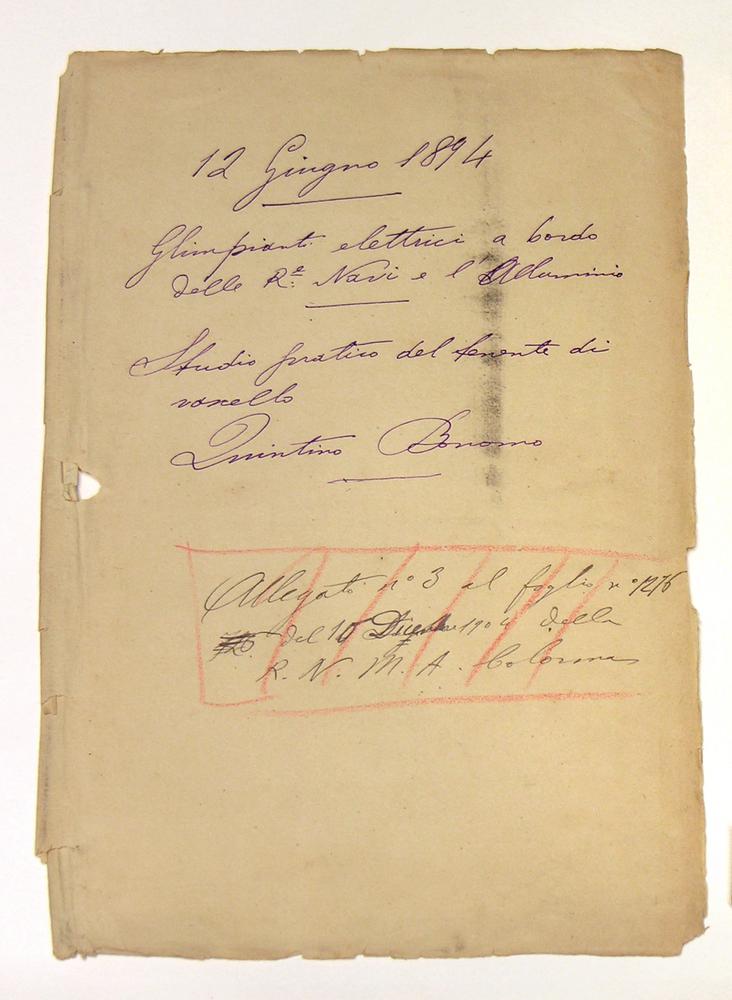 12 Giugno 1894
Gl'impianti elettrici a bordo
delle R.e Navi e l'Alluminio
Studio pratico del tenente di
vascello
Quintino Bonomo
Allegato n° 3 al foglio n° 1276
del 10 1904 della
R. N. M. A. Colonna